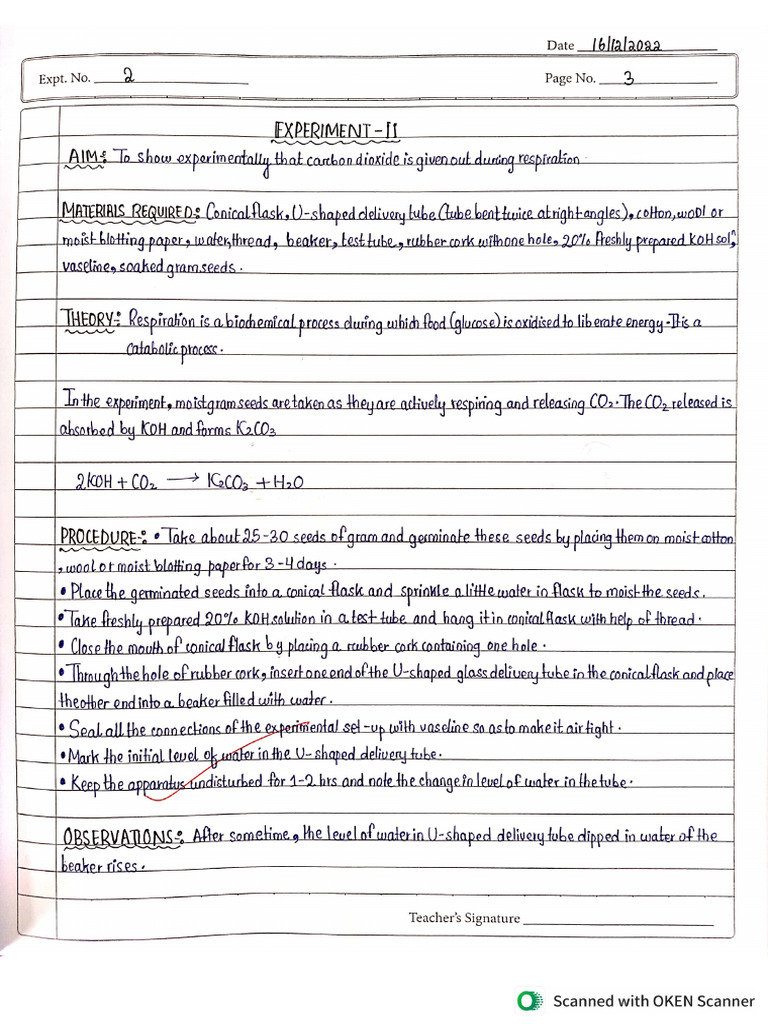 Date 16/12/2022
Expt. No. 2 Page No. 3
EXPERIMENT-II
AIM:- To show experimentally that carbon dioxide is given out during respiration.
MATERIALS REQUIRED:- Conical flask, U-shaped delivery tube (tube bent twice at right angles), cotton, wool or
moist blotting paper, water, thread, beaker, test tube, rubber cork with one hole, 20% freshly prepared KOH solⁿ,
vaseline, soaked gram seeds.
THEORY:- Respiration is a biochemical process during which food (glucose) is oxidised to liberate energy. It is a
catabolic process.
In the experiment, moist gram seeds are taken as they are actively respiring and releasing CO₂. The CO₂ released is
absorbed by KOH and forms K₂CO₃
2KOH + CO₂ → K₂CO₃ + H₂O
PROCEDURE:- • Take about 25-30 seeds of gram and germinate these seeds by placing them on moist cotton
, wool or moist blotting paper for 3-4 days.
• Place the germinated seeds into a conical flask and sprinkle a little water in flask to moist the seeds.
• Take freshly prepared 20% KOH solution in a test tube and hang it in conical flask with help of thread.
• Close the mouth of conical flask by placing a rubber cork containing one hole.
• Through the hole of rubber cork, insert one end of the U-shaped glass delivery tube in the conical flask and place
the other end into a beaker filled with water.
• Seal all the connections of the experimental set-up with vaseline so as to make it air tight.
• Mark the initial level of water in the U-shaped delivery tube.
• Keep the apparatus undisturbed for 1-2 hrs and note the change in level of water in the tube.
OBSERVATIONS:- After sometime, the level of water in U-shaped delivery tube dipped in water of the
beaker rises.
Teacher's Signature
Scanned with OKEN Scanner